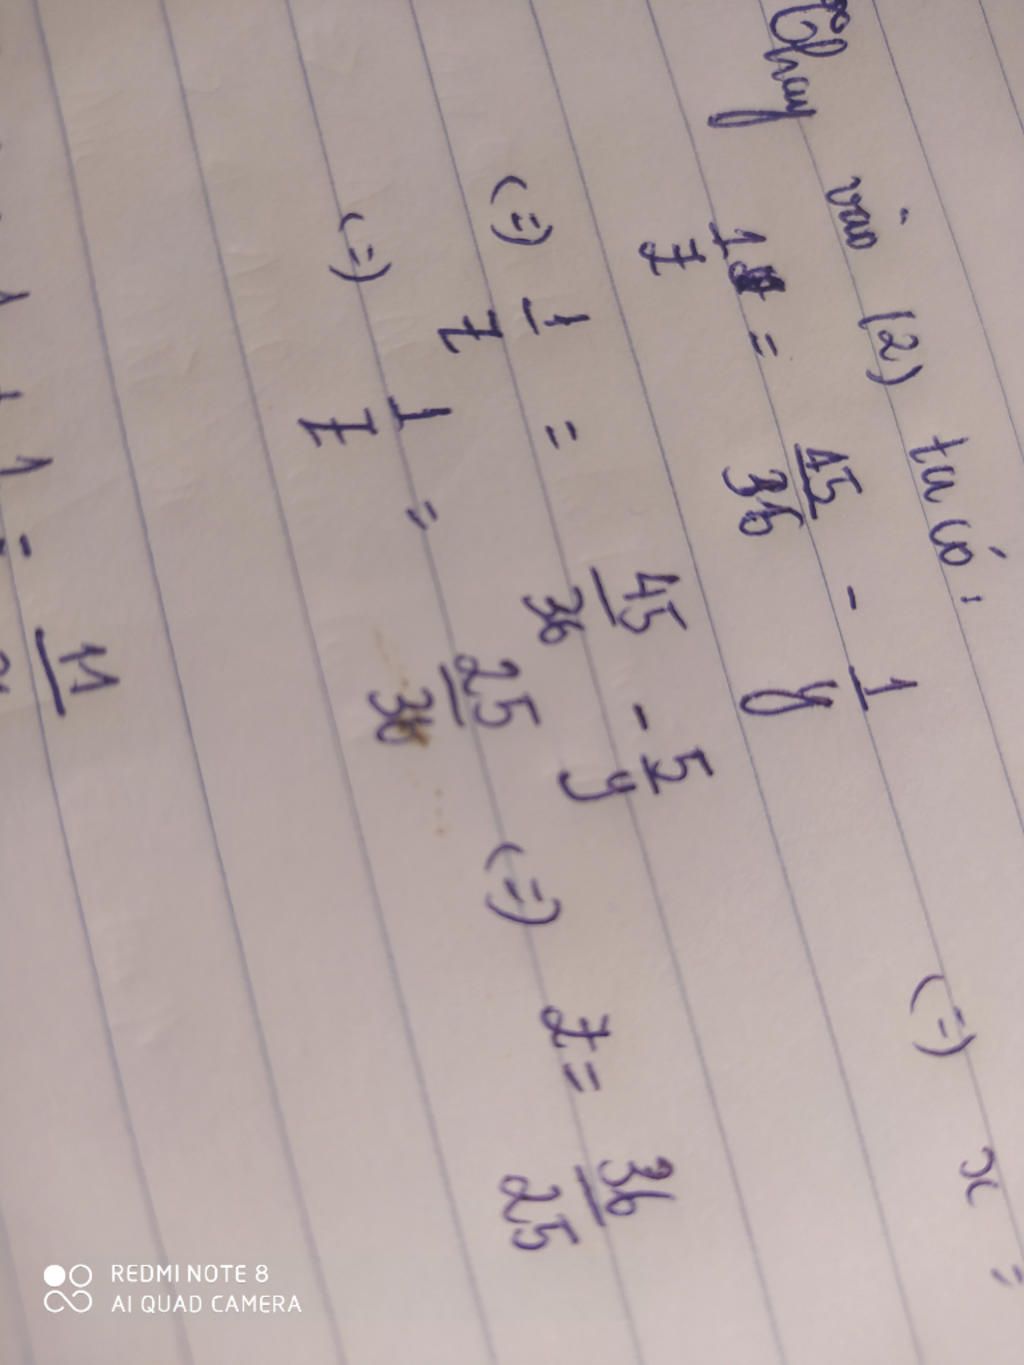 (=) x =
Thay vào (2) ta có:
1/z = 45/36 - 1/y
(=) 1/z = 45/36 - 5/y
(=) 1/z = 25/36 (=) z = 36/25
1 1 1 = 11
REDMI NOTE 8
AI QUAD CAMERA